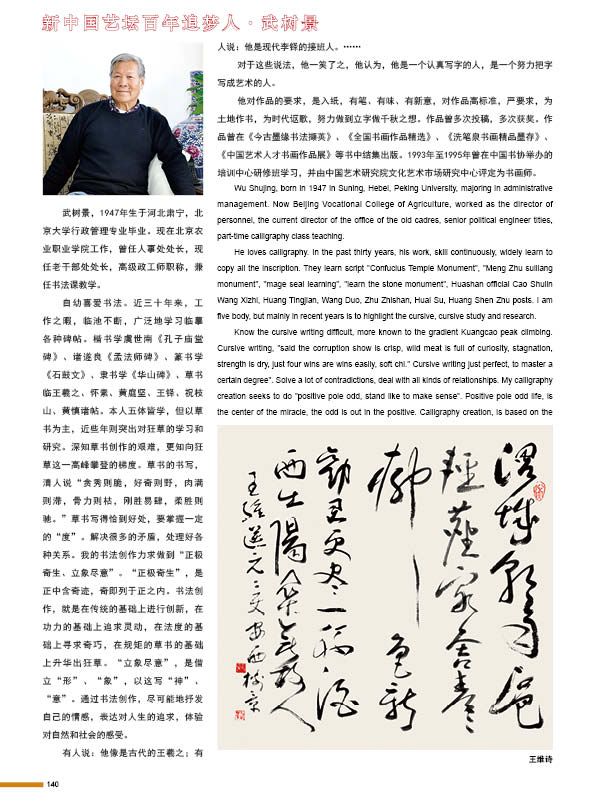 新中国艺坛百年追梦人·武树景
武树景，1947年生于河北肃宁，北
京大学行政管理专业毕业。现在北京农
业职业学院工作，曾任人事处处长，现
任老干部处处长，高级政工师职称，兼
任书法课教学。
自幼喜爱书法。近三十年来，工
作之暇，临池不断，广泛地学习临摹
各种碑帖。楷书学虞世南《孔子庙堂
碑》、诸遂良《孟法师碑》、篆书学
《石鼓文》、隶书学《华山碑》、草书
临王羲之、怀素、黄庭坚、王铎、祝枝
山、黄慎诸帖。本人五体皆学，但以草
书为主，近些年则突出对狂草的学习和
研究。深知草书创作的艰难，更知向狂
草这一高峰攀登的梯度。草书的书写，
清人说“贪秀则脆，好奇则野，肉满
则滞，骨力则枯，刚胜易肆，柔胜则
驰。”草书写得恰到好处，要掌握一定
的“度”。解决很多的矛盾，处理好各
种关系。我的书法创作力求做到“正极
奇生、立象尽意”。“正极奇生”，是
正中含奇迹，奇即列于正之内。书法创
作，就是在传统的基础上进行创新，在
功力的基础上追求灵动，在法度的基
础上寻求奇巧，在规矩的草书的基础
上升华出狂草。“立象尽意”，是借
立“形”、“象”，以这写“神”、
“意”。通过书法创作，尽可能地抒发
自己的情感，表达对人生的追求，体验
对自然和社会的感受。
有人说：他像是古代的王羲之；有
人说：他是现代李铎的接班人。……
对于这些说法，他一笑了之，他认为，他是一个认真写字的人，是一个努力把字
写成艺术的人。
他对作品的要求，是入纸，有笔、有味、有新意，对作品高标准，严要求，为
土地作书，为时代讴歌，努力做到立字做千秋之想。作品曾多次投稿，多次获奖。作
品曾在《今古墨缘书法撷英》、《全国书画作品精选》、《洗笔泉书画精品墨存》、
《中国艺术人才书画作品展》等书中结集出版。1993年至1995年曾在中国书协举办的
培训中心研修班学习，并由中国艺术研究院文化艺术市场研究中心评定为书画师。
Wu Shujing, born in 1947 in Suning, Hebei, Peking University, majoring in administrative
management. Now Beijing Vocational College of Agriculture, worked as the director of
personnel, the current director of the office of the old cadres, senior political engineer titles,
part-time calligraphy class teaching.
He loves calligraphy. In the past thirty years, his work, skill continuously, widely learn to
copy all the inscription. They learn script "Confucius Temple Monument", "Meng Zhu suiliang
monument", "mage seal learning", "learn the stone monument", Huashan official Cao Shulin
Wang Xizhi, Huang Tingjian, Wang Duo, Zhu Zhishan, Huai Su, Huang Shen Zhu posts. I am
five body, but mainly in recent years is to highlight the cursive, cursive study and research.
Know the cursive writing difficult, more known to the gradient Kuangcao peak climbing.
Cursive writing, "said the corruption show is crisp, wild meat is full of curiosity, stagnation,
strength is dry, just four wins are wins easily, soft chi." Cursive writing just perfect, to master a
certain degree". Solve a lot of contradictions, deal with all kinds of relationships. My calligraphy
creation seeks to do "positive pole odd, stand like to make sense". Positive pole odd life, is
the center of the miracle, the odd is out in the positive. Calligraphy creation, is based on the
渭城朝雨浥
轻尘客舍青青
柳色新
劝君更尽一杯酒
西出阳关无故人
王维送元二使安西 树景
王维诗
140